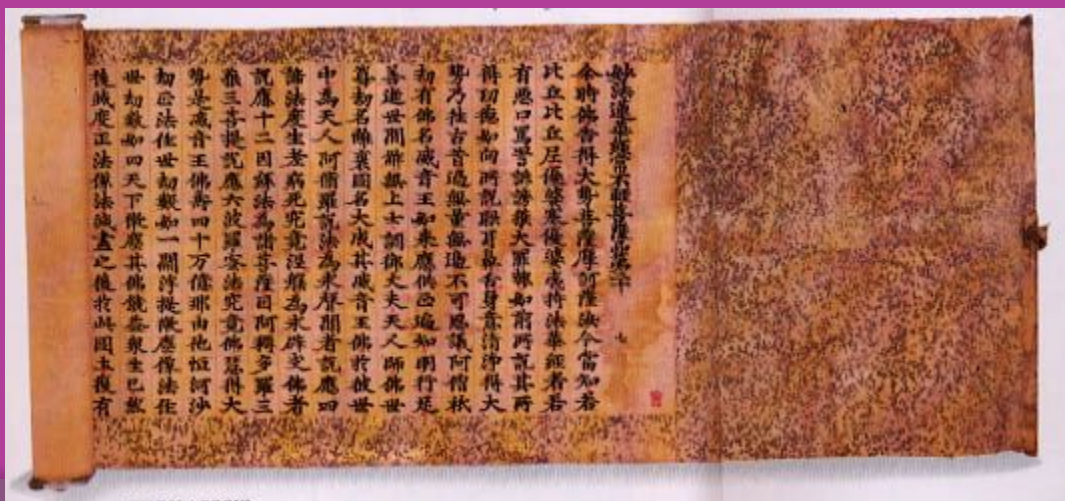 妙法蓮華經常不輕菩薩品第二十
七
尒時佛告得大勢菩薩摩訶薩汝今當知若
比丘比丘尼優婆塞優婆夷持法華經者若
有惡口罵詈誹謗獲大罪報如前所說其所
得功德如向所說眼耳鼻舌身意清淨得大
勢乃往古昔過無量無邊不可思議阿僧祇
劫有佛名威音王如來應供正遍知明行足
善逝世間解無上士調御丈夫天人師佛世
尊劫名離衰國名大成其威音王佛於彼世
中為天人阿脩羅說法為求聲聞者說應四
諦法度生老病死究竟涅槃為求辟支佛者
說應十二因緣法為諸菩薩因阿耨多羅三
藐三菩提說應六波羅蜜法究竟佛慧得大
勢是威音王佛壽四十万億那由他恒河沙
劫正法住世劫數如一閻浮提微塵像法住
世劫數如四天下微塵其佛饒益眾生已然
後滅度正法像法滅盡之後於此國土復有